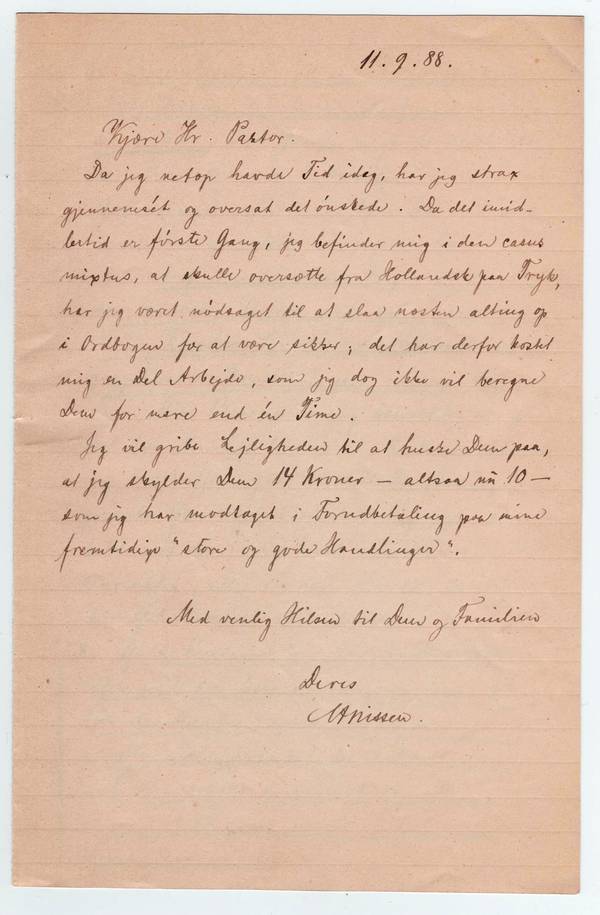 11. 9. 88.
Kjære Hr. Pastor.
Da jeg netop havde Tid idag, har jeg strax
gjennemsét og oversat det ónskede. Da det imid-
lertid er fórste Gang, jeg befinder mig i den casus
mixtus, at skulle oversætte fra Hollandsk paa Tryk,
har jeg været nódsaget til at slaa næsten alting op
i Ordbogen for at være sikker; det har derfor kostet
mig en Del Arbejde, som jeg dog ikke vil beregne
Dem for mere end én Time.
Jeg vil gribe Lejligheden til at huske Dem paa,
at jeg skylder Dem 14 Kroner – altsaa nu 10 –
som jeg har modtaget i Forudbetaling paa mine
fremtidige "store og gode Handlinger".
Med venlig Hilsen til Dem og Familien
Deres
Nissen.